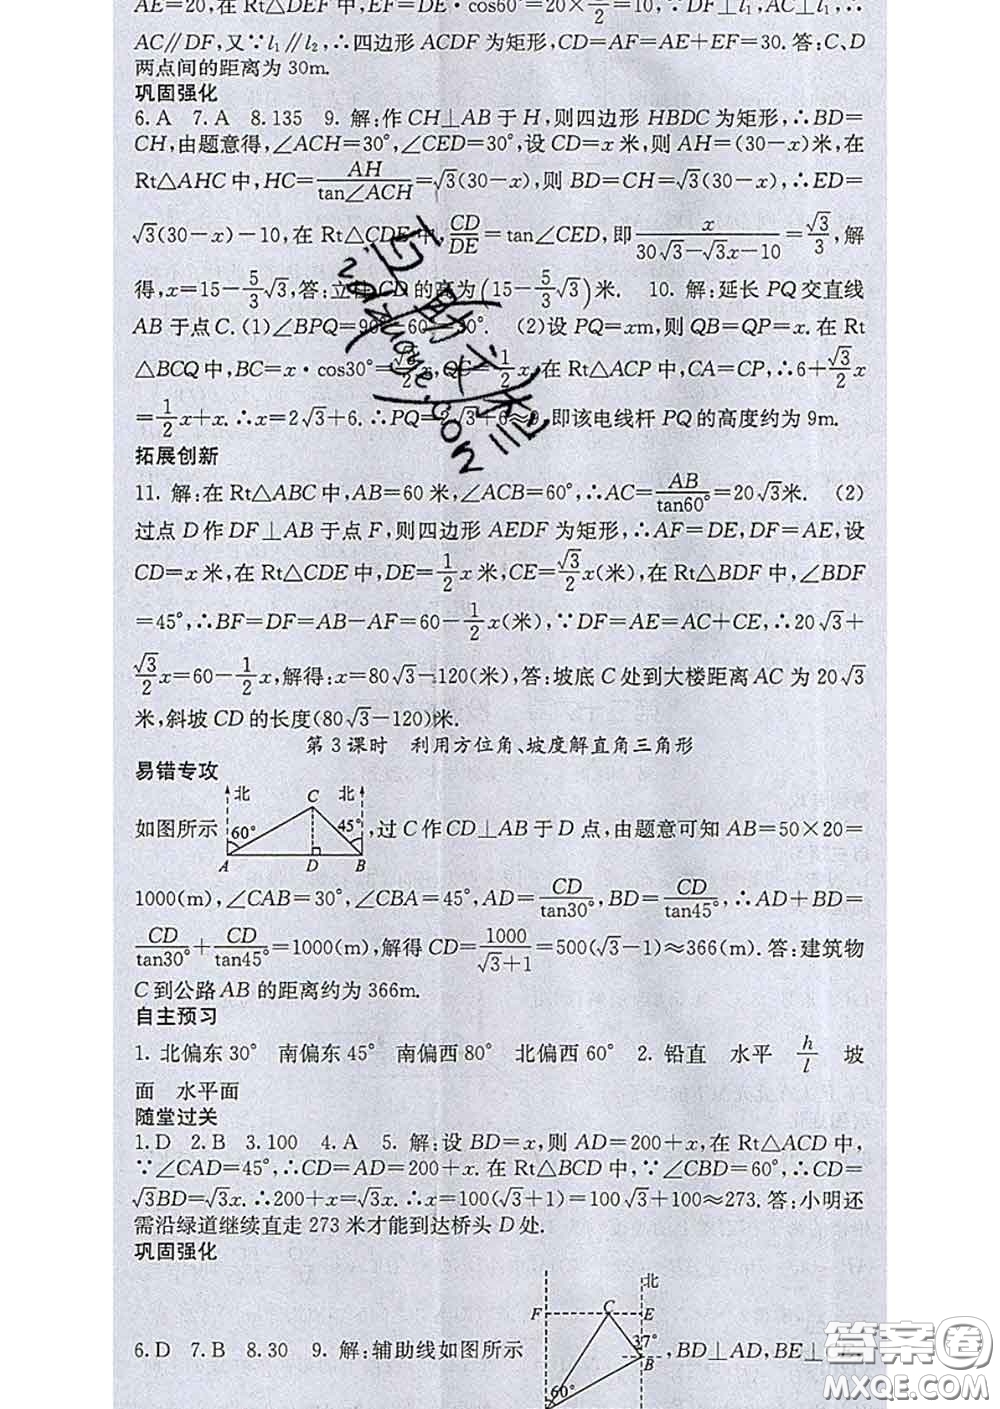 AE=20,在 Rt△DEF 中,EF=DE·cos60°=20×1/2=10,∵DF⊥l₁,AC⊥l₁,∴
AC∥DF,又∵l₁∥l₂,∴四边形 ACDF 为矩形,CD=AF=AE+EF=30.答:C、D
两点间的距离为 30m.
巩固强化
6.A 7.A 8.135 9. 解:作 CH⊥AB 于 H,则四边形 HBDC 为矩形,∴BD=
CH,由题意得,∠ACH=30°,∠CED=30°,设 CD=x 米,则 AH=(30-x)米,在
Rt△AHC 中,HC=AH/tan∠ACH=√3(30-x),则 BD=CH=√3(30-x),∴ED=
√3(30-x)-10,在 Rt△CDE 中,CD/DE=tan∠CED,即x/(30√3-√3x-10)=√3/3,解
得,x=15-5/3√3,答:立柱 CD 的高为(15-5/3√3)米. 10. 解:延长 PQ 交直线
AB 于点 C.(1)∠BPQ=90°-60°=30°. (2)设 PQ=xm,则 QB=QP=x.在 Rt
△BCQ 中,BC=x·cos30°=√3/2x,QC=1/2x,在 Rt△ACP 中,CA=CP,∴6+√3/2x
=1/2x+x.∴x=2√3+6.∴PQ=2√3+6≈9,即该电线杆 PQ 的高度约为 9m.
拓展创新
11. 解:在 Rt△ABC 中,AB=60 米,∠ACB=60°,∴AC=AB/tan60°=20√3米. (2)
过点 D 作 DF⊥AB 于点 F,则四边形 AEDF 为矩形,∴AF=DE,DF=AE,设
CD=x 米,在 Rt△CDE 中,DE=1/2x 米,CE=√3/2x(米),在 Rt△BDF 中,∠BDF
=45°,∴BF=DF=AB-AF=60-1/2x(米),∵DF=AE=AC+CE,∴20√3+
√3/2x=60-1/2x,解得:x=80√3-120(米),答:坡底 C 处到大楼距离 AC 为 20√3
米,斜坡 CD 的长度(80√3-120)米.
第 3 课时 利用方位角、坡度解直角三角形
易错专攻
北 C 北
如图所示 60° 45° ,过 C 作 CD⊥AB 于 D 点,由题意可知 AB=50×20=
A D B
1000(m),∠CAB=30°,∠CBA=45°,AD=CD/tan30°,BD=CD/tan45°,∴AD+BD=
CD/tan30°+CD/tan45°=1000(m),解得 CD=1000/(√3+1)=500(√3-1)≈366(m).答:建筑物
C 到公路 AB 的距离约为 366m.
自主预习
1. 北偏东 30° 南偏东 45° 南偏西 80° 北偏西 60° 2. 铅直 水平 h/l 坡
面 水平面
随堂过关
1.D 2.B 3.100 4.A 5. 解:设 BD=x,则 AD=200+x,在 Rt△ACD 中,
∵∠CAD=45°,∴CD=AD=200+x.在 Rt△BCD 中,∵∠CBD=60°,∴CD=
√3BD=√3x.∴200+x=√3x.∴x=100(√3+1)=100√3+100≈273.答:小明还
需沿绿道继续直走 273 米才能到达桥头 D 处.
巩固强化
北
F C E
6.D 7.B 8.30 9. 解:辅助线如图所示 37° B ,BD⊥AD,BE⊥
60°
答案圈
MXQE.COM